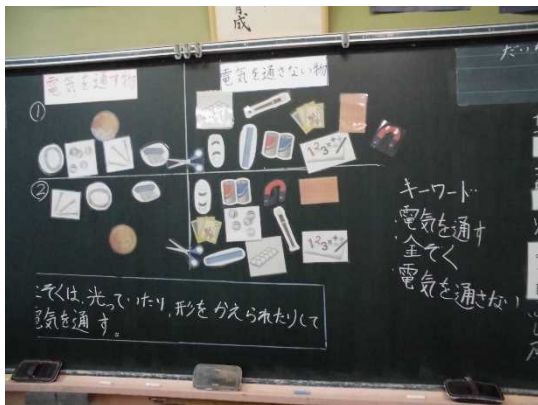 育成
電気を通す物
電気を通さない物
①
②
キーワード
・電気を通す
・金ぞく
・電気を通さない
ぞくは、光っていたり、形をかえられたりして
電気を通す。